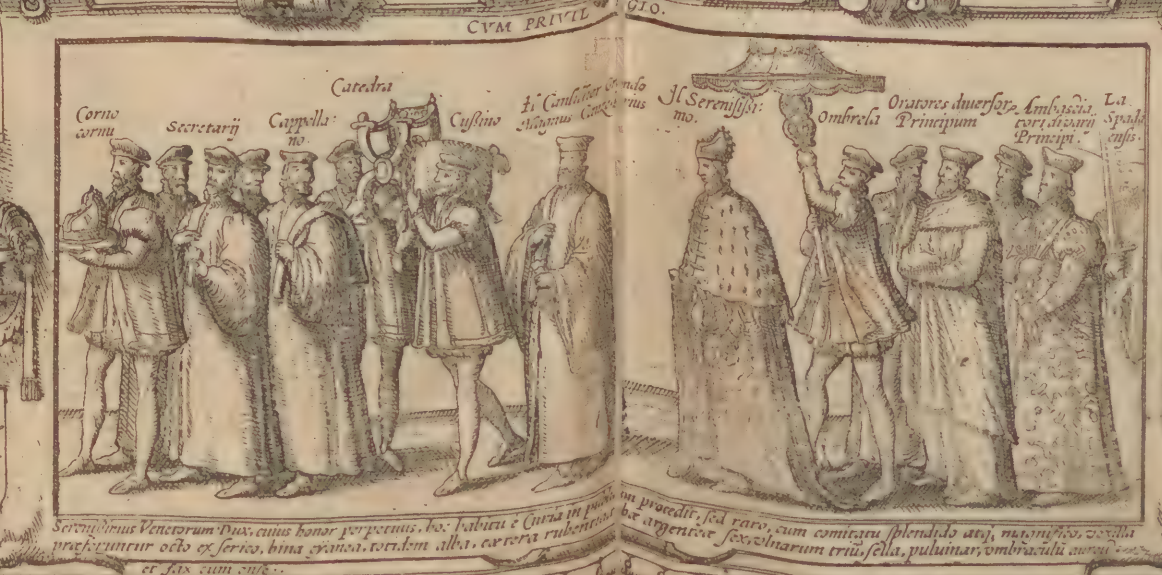 CVM PRIVIL GIO.
Corno
cornu
Secretarij
Cappella
no.
Catedra
Cussino
Il Cancilier Grando
Magnus
Il Serenissi:
mo.
Ombrela
Oratores diversor
Principum
Ambascia,
tori di varij
Principi.
La
Spada
ensis.
Serenissimus Venetorum Dux, cuius honor perpetuus, hoc habitu e Curia in procedit, sed raro, cum comitatu splendido atq, magnifico, vexilla
præferuntur octo ex serico, bina totidem alba, cætera argenteæ sex, ulnarum triu, sella, puluinar, ombraculū aureū
et fax cum ense..